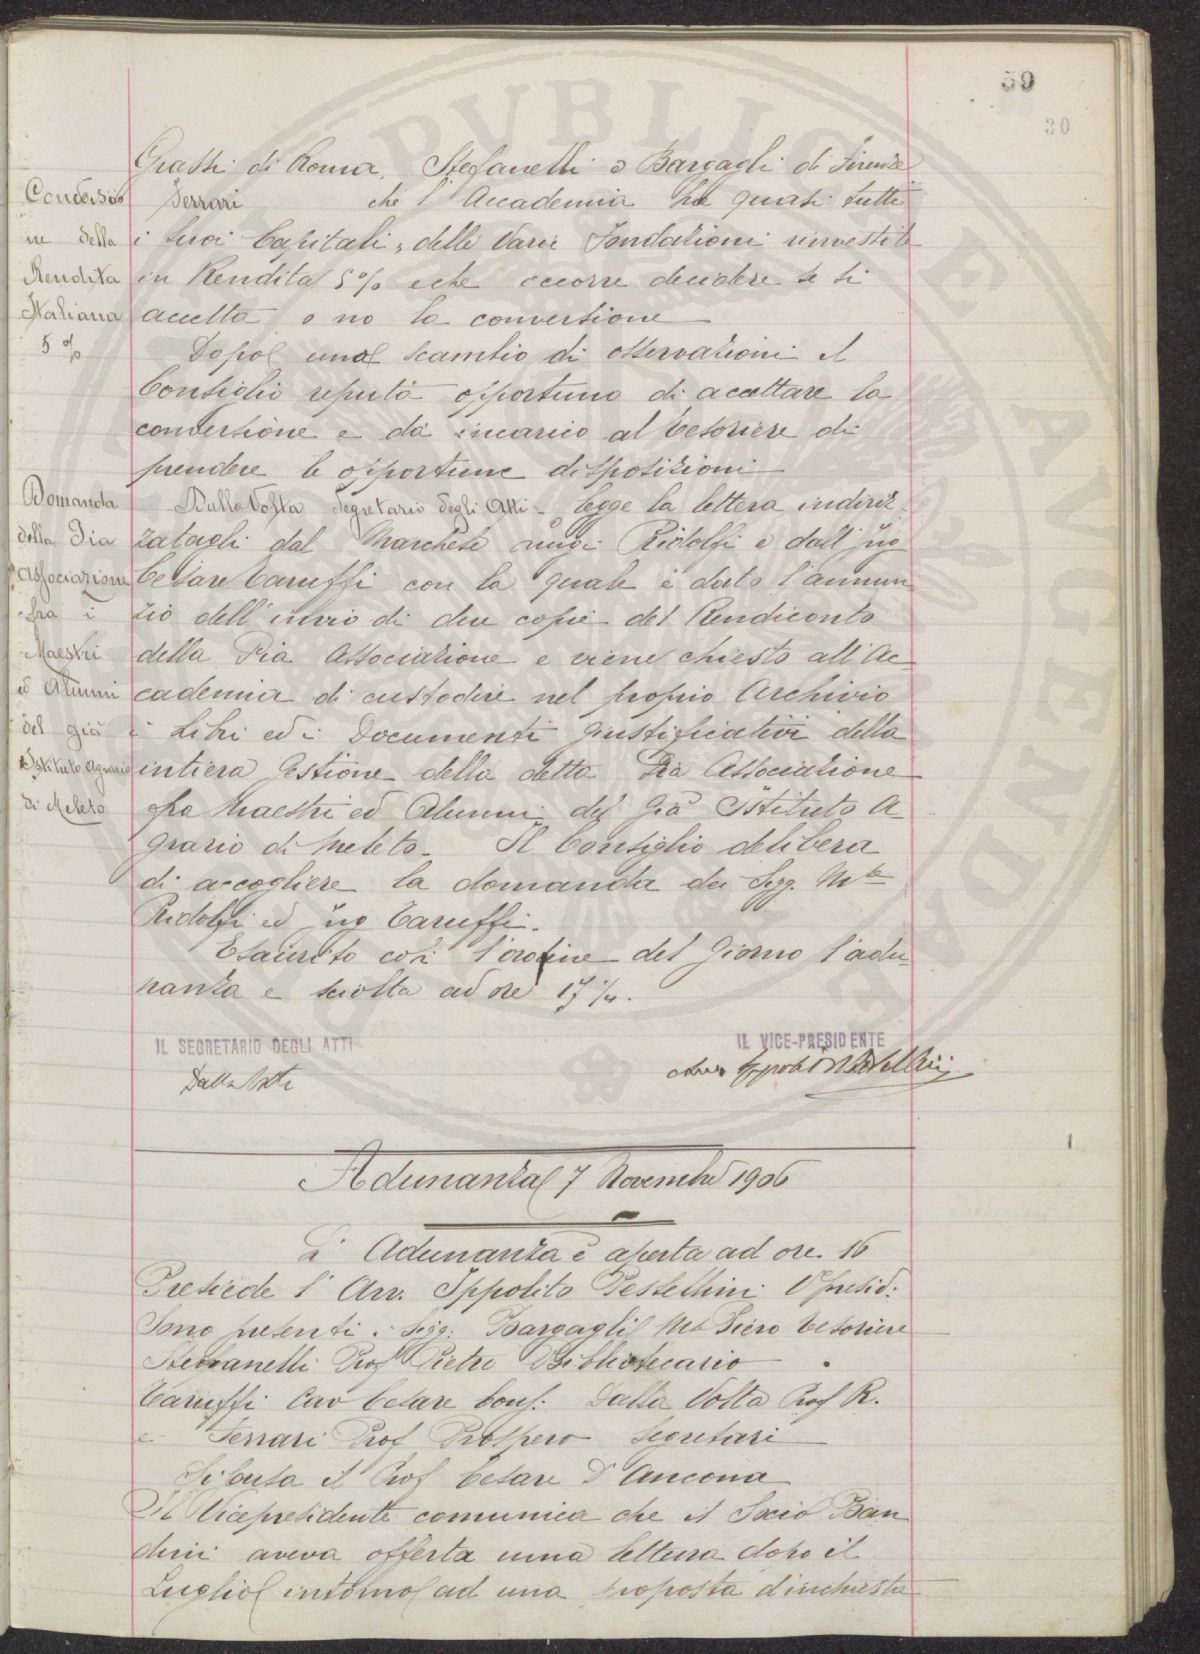 59
30
Grassi di Roma, Stefanelli e Bargagli di Firenze
Conversio
ne della
Rendita
Italiana
5 %
Ferrari che l'Accademia ha quasi tutti
i suoi Capitali, delle varie Fondazioni rinvestiti
in Rendita 5% e che occorre decidere se si
accetta o no la conversione
Dopo uno scambio di osservazioni il
Consiglio reputa opportuno di accettare la
conversione e dà incarico al Tesoriere di
prendere le opportune disposizioni
Domanda
della Pia
Associazione
fra i
Maestri
ed Alunni
del già
Istituto Agrario
di Meleto
Dalla Volta Segretario degli Atti - legge la lettera indiriz
zatagli dal Marchese Luigi Ridolfi e dall'Ing
Cesare Taruffi con la quale è dato l'annun
zio dell'invio di due copie del Rendiconto
della Pia Associazione e viene chiesto all'Ac
cademia di custodire nel proprio Archivio
i Libri ed i Documenti giustificativi della
intiera Gestione della detta Pia Associazione
fra Maestri ed Alunni del già Istituto A-
grario di Meleto - Il Consiglio delibera
di accogliere la domanda dei Sigg. Mse
Ridolfi ed Ing Taruffi.
Esaurito così l'ordine del Giorno l'adu-
nanza è sciolta ad ore 17 1/4.
IL SEGRETARIO DEGLI ATTI
IL VICE-PRESIDENTE
Dalla Volta
Ippolito Pestellini
Adunanza 7 Novembre 1906
L'Adunanza è aperta ad ore 16
Presiede l'Avv. Ippolito Pestellini V presid:
Sono presenti i Sigg: Bargagli Mse Piero Tesoriere
Stefanelli Prof Pietro Bibliotecario
Taruffi Cav Cesare Cons: Dalla Volta Prof R.
e Ferrari Prof Prospero Segretari
Si scusa il Prof Cesare D'Ancona
Il Vicepresidente comunica che il Socio Ban
dini aveva offerta una lettura dopo il
Luglio intorno ad una proposta d'inchiesta